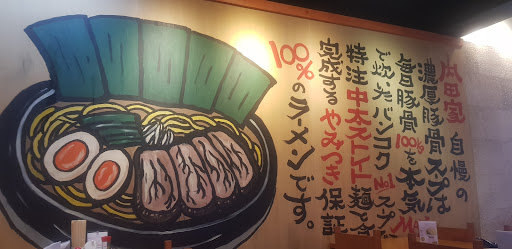 内田家 自慢の
濃厚豚骨スープは
毎日豚骨100%を本気
で炊いたバンコクNo.1スープ
特注中太ストレート麺で
完成するやみつき保証
100%のラーメンです。